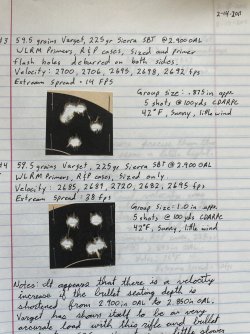 2-14-2011
#3 59.5 grains Varget, 225gr Sierra SBT @ 2.900 OAL
WLRM Primers, R&P cases, Sized and primer
flash holes deburred on both sides.
Velocity: 2700, 2706, 2695, 2698, 2692 fps
Extream Spread = 14 FPS
Group Size: .875 in appx
5 shots @ 100yds CDARPC
42°F, Sunny, little wind
#4 59.5 grains Varget, 225gr Sierra SBT @ 2.900 OAL
WLRM Primers, R&P cases, Sized only
Velocity: 2685, 2689, 2720, 2682, 2695 fps
Extream Spread: 38 fps
Group Size: 1.0 in appx
5 shots @ 100yds CDARPC
42°F, Sunny, little wind
Notes: It appears that there is a velocity
increase if the bullet seating depth is
shortened from 2.900in OAL to 2.850in OAL.
Varget has shown itself to be very
accurate load with this rifle and bullet
little slower